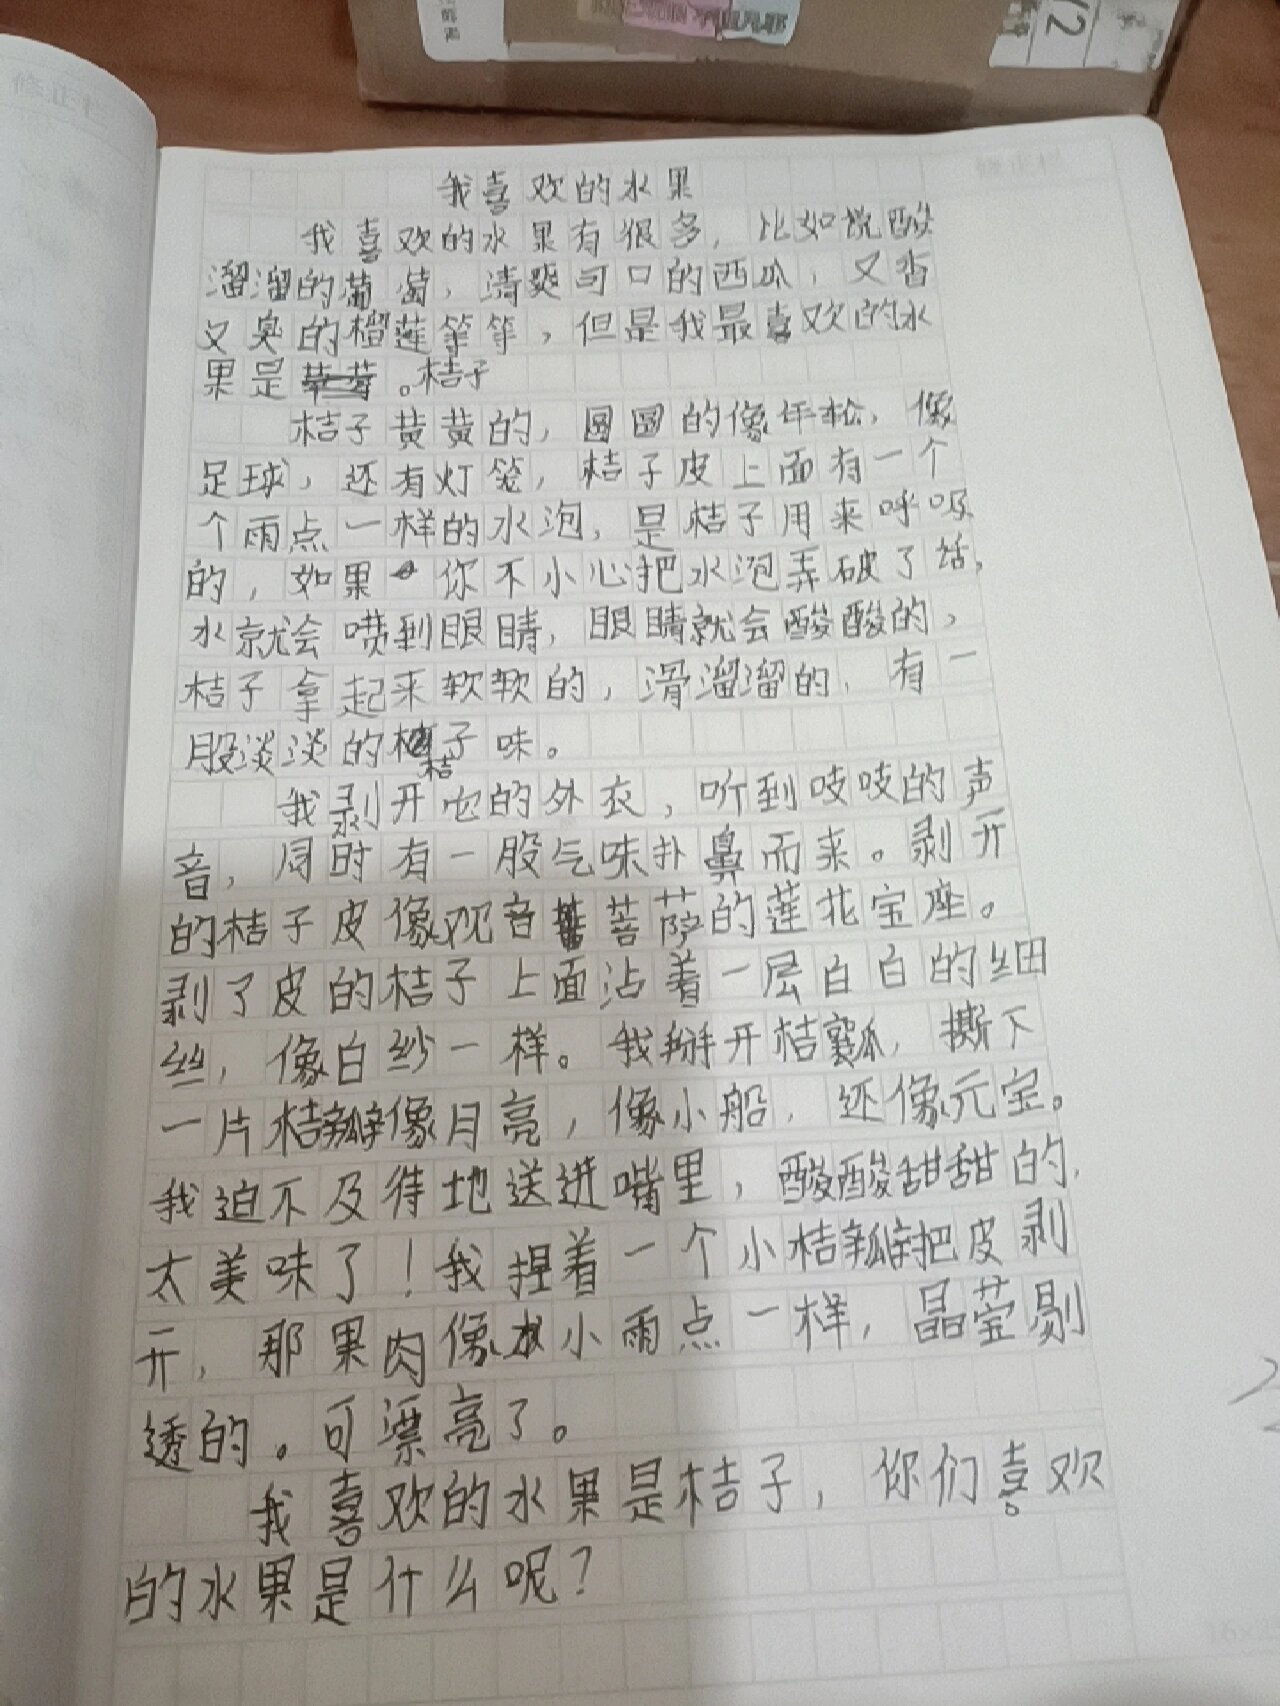 我喜欢的水果
我喜欢的水果有很多，比如说酸
溜溜的葡萄，清爽可口的西瓜，又香
又臭的榴莲等等，但是我最喜欢的水
果是。桔子
桔子黄黄的，圆圆的像，像
足球，还有灯笼，桔子皮上面有一个
个雨点一样的水泡，是桔子用来呼吸
的，如果你不小心把水泡弄破了话，
水就会喷到眼睛，眼睛就会酸酸的，
桔子拿起来软软的，滑溜溜的，有一
股淡淡的桔子味。
我剥开它的外衣，听到吱吱的声
音，同时有一股气味扑鼻而来。剥开
的桔子皮像观音菩萨的莲花宝座。
剥了皮的桔子上面沾着一层白白的细
丝，像白纱一样。我掰开桔瓤，撕下
一片桔瓣像月亮，像小船，还像元宝。
我迫不及待地送进嘴里，酸酸甜甜的，
太美味了！我捏着一个小桔瓣把皮剥
开，那果肉像小雨点一样，晶莹剔
透的。可漂亮了。
我喜欢的水果是桔子，你们喜欢
的水果是什么呢？